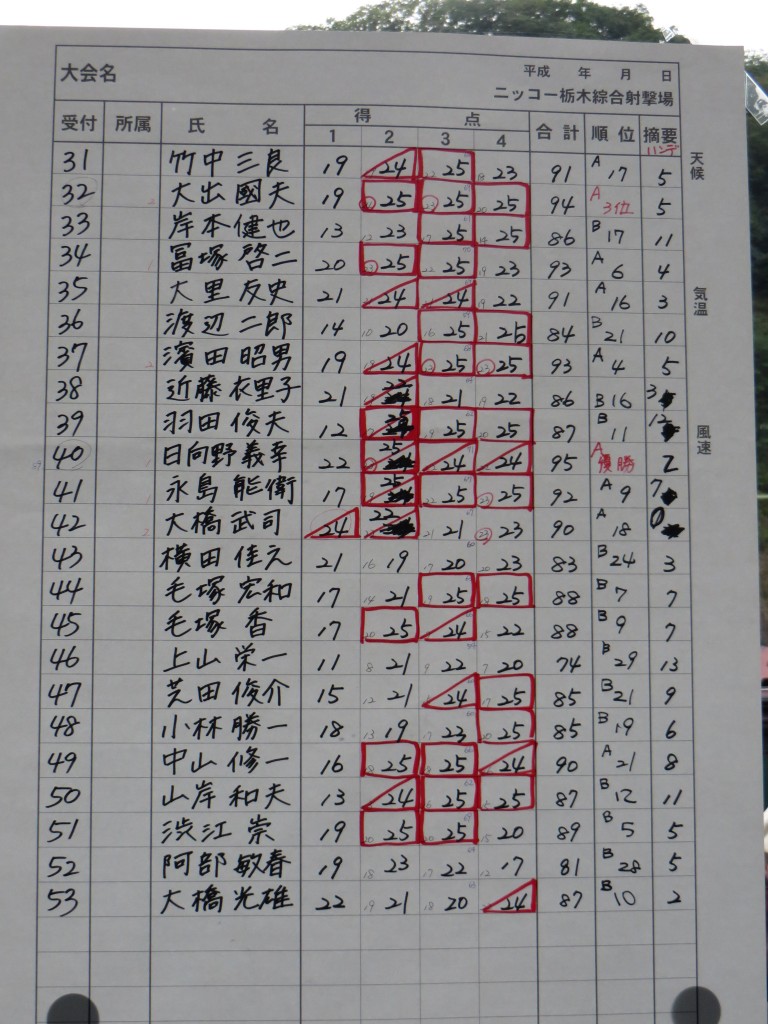 大会名 平成 年 月 日
ニッコー栃木綜合射撃場
受付 所属 氏 名 得 点 合計 順位 摘要
1 2 3 4 ハンデ
天候
31 竹中三良 19 24 25 23 91 A 17 5
32 大出國夫 19 25 25 25 94 A 3位 5
33 岸本健也 13 23 25 25 86 B 17 11
34 冨塚啓二 20 25 25 23 93 A 6 4
気温
35 大里友史 21 24 24 22 91 A 16 3
36 渡辺二郎 14 20 25 25 84 B 21 10
37 濱田昭男 19 24 25 25 93 A 4 5
38 近藤衣里子 21 22 21 22 86 B 16 3
39 羽田俊夫 12 25 25 25 87 B 11 12
風速
40 日向野義幸 22 25 24 24 95 A 優勝 2
41 永島能衛 17 25 25 25 92 A 9 7
42 大橋武司 24 22 21 23 90 A 18 0
43 横田佳元 21 19 20 23 83 B 24 3
44 毛塚宏和 17 21 25 25 88 B 7 7
45 毛塚香 17 25 24 22 88 B 9 7
46 上山栄一 11 21 22 20 74 B 29 13
47 芝田俊介 15 21 24 25 85 B 21 9
48 小林勝一 18 19 23 25 85 B 19 6
49 中山修一 16 25 25 24 90 A 21 8
50 山岸和夫 13 24 25 25 87 B 12 11
51 渋江崇 19 25 25 20 89 B 5 5
52 阿部敏春 19 23 22 17 81 B 28 5
53 大橋光雄 22 21 20 24 87 B 10 2